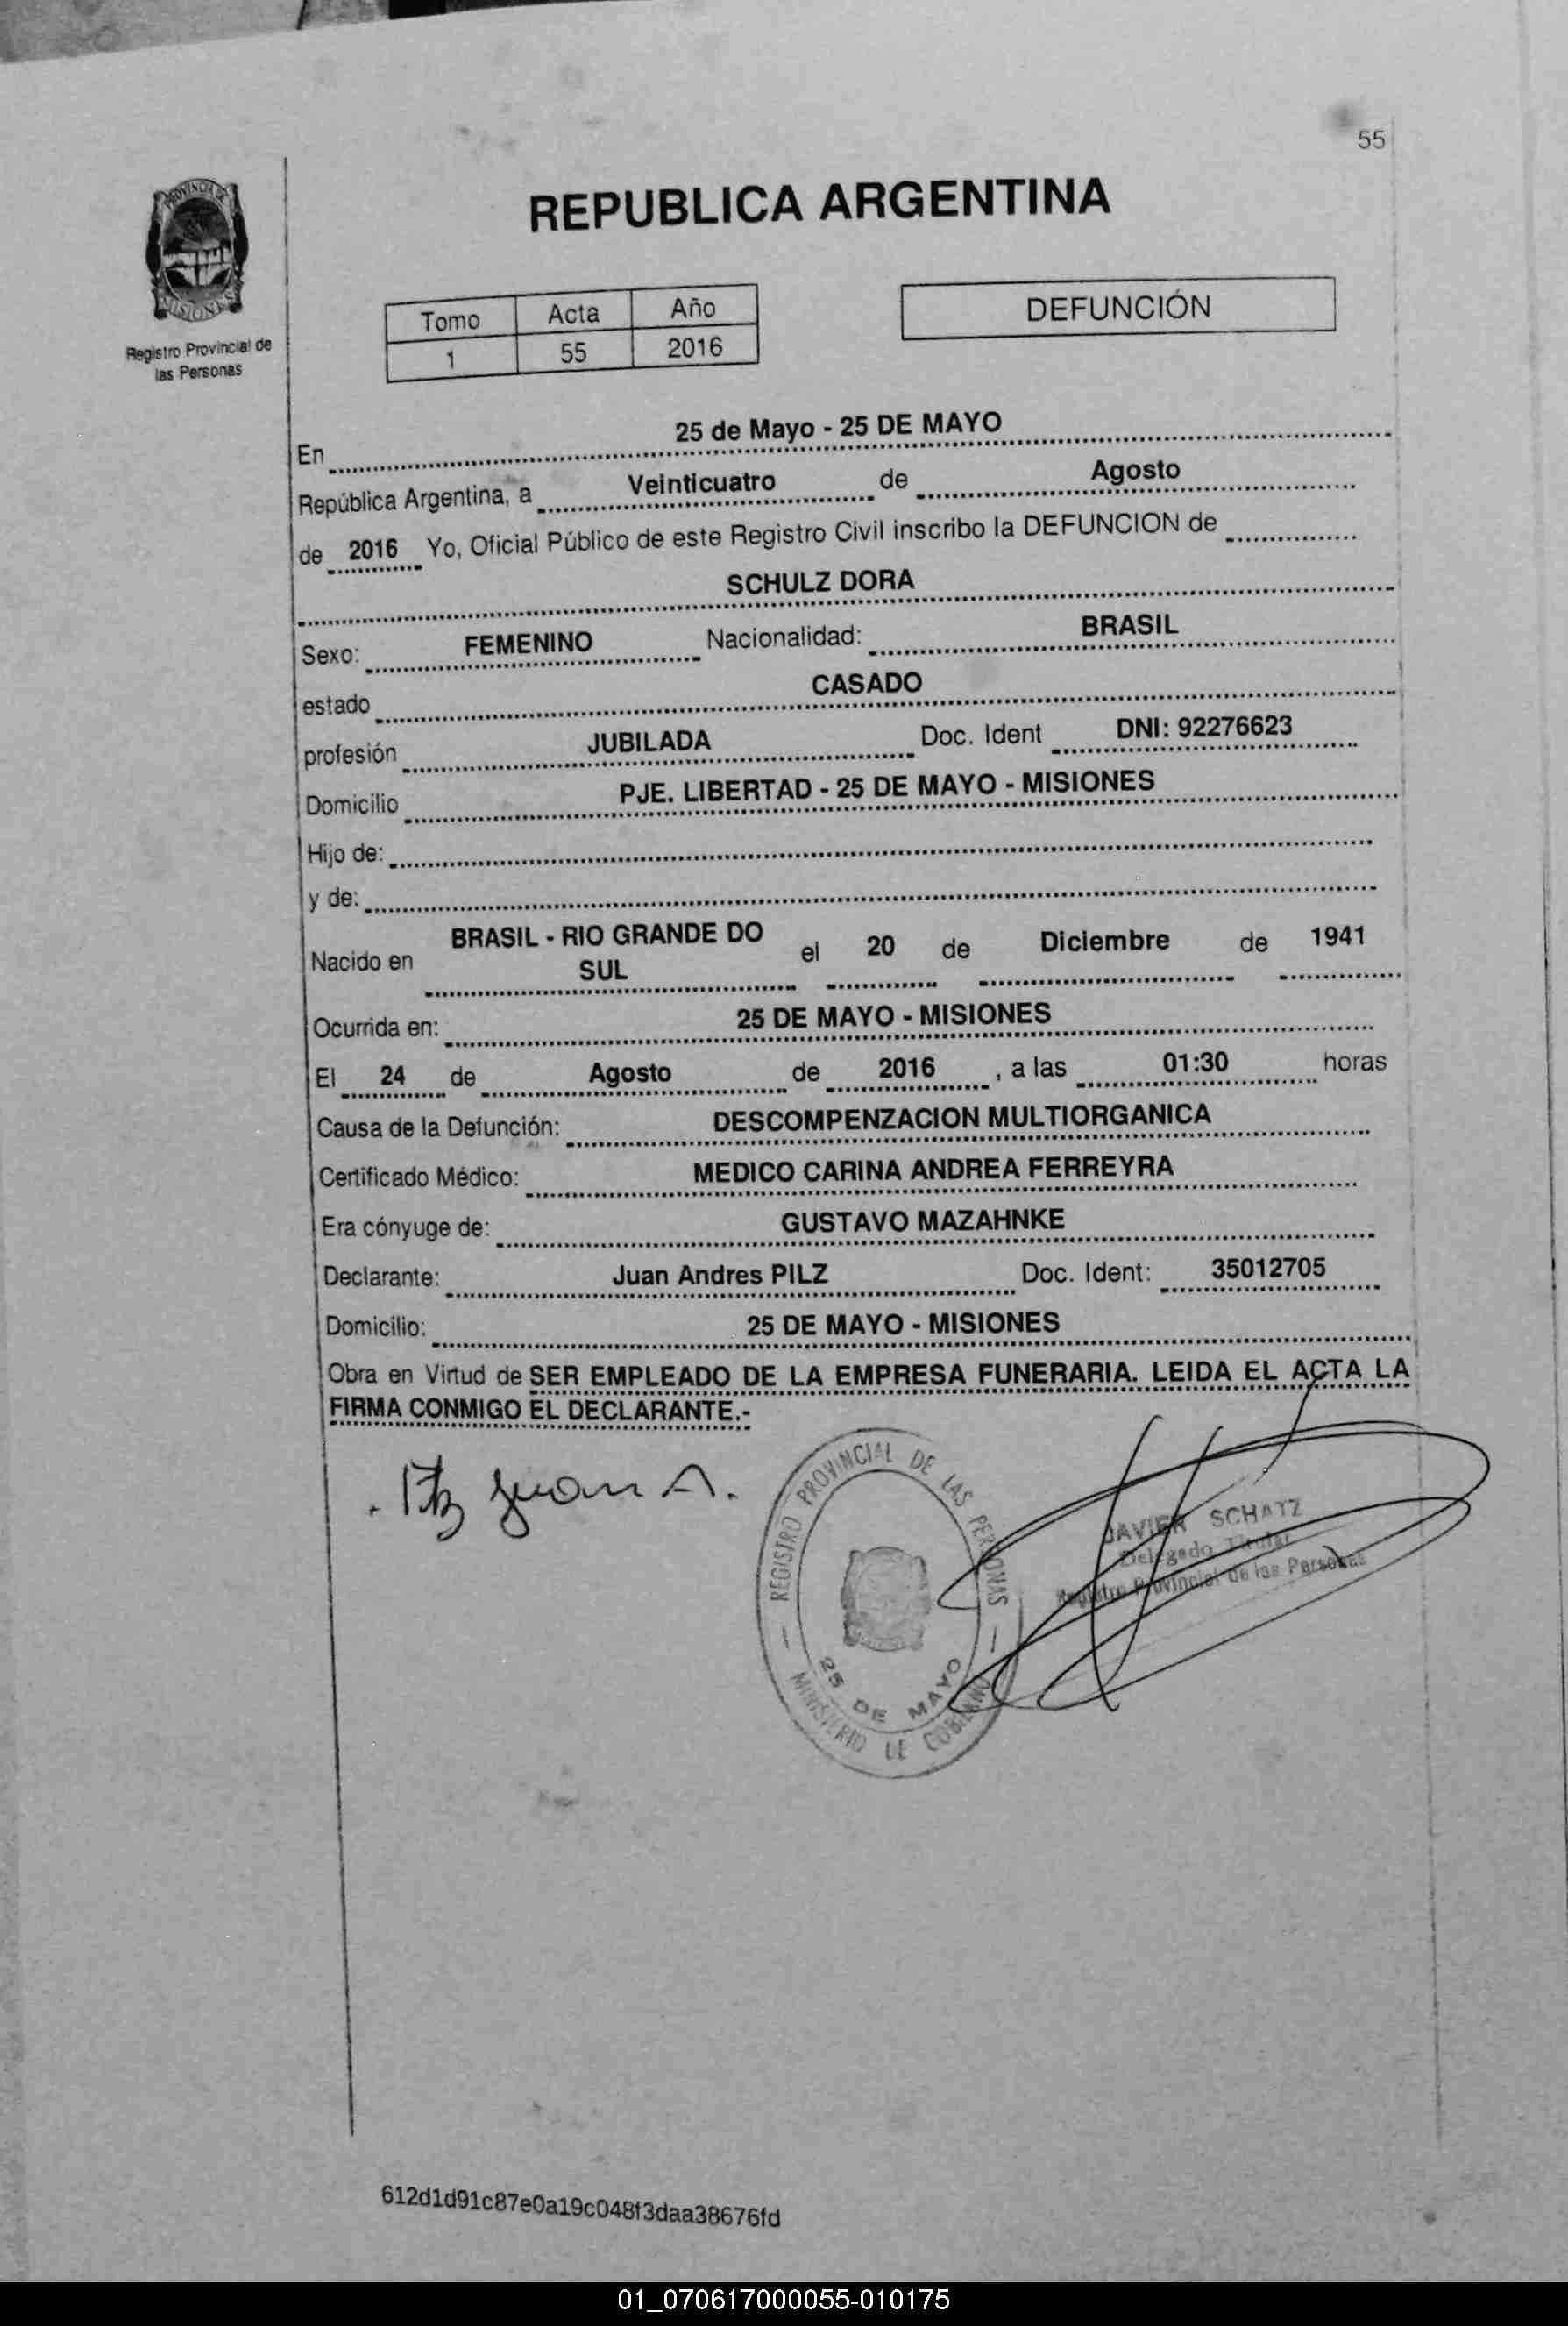 55
PROVINCIA DE
MISIONES
Registro Provincial de
las Personas
REPUBLICA ARGENTINA
Tomo Acta Año
1 55 2016
DEFUNCIÓN
En 25 de Mayo - 25 DE MAYO
República Argentina, a Veinticuatro de Agosto
de 2016 Yo, Oficial Público de este Registro Civil inscribo la DEFUNCION de
SCHULZ DORA
Sexo: FEMENINO Nacionalidad: BRASIL
estado CASADO
profesión JUBILADA Doc. Ident DNI: 92276623
Domicilio PJE. LIBERTAD - 25 DE MAYO - MISIONES
Hijo de:
y de:
Nacido en BRASIL - RIO GRANDE DO SUL el 20 de Diciembre de 1941
Ocurrida en: 25 DE MAYO - MISIONES
El 24 de Agosto de 2016 , a las 01:30 horas
Causa de la Defunción: DESCOMPENZACION MULTIORGANICA
Certificado Médico: MEDICO CARINA ANDREA FERREYRA
Era cónyuge de: GUSTAVO MAZAHNKE
Declarante: Juan Andres PILZ Doc. Ident: 35012705
Domicilio: 25 DE MAYO - MISIONES
Obra en Virtud de SER EMPLEADO DE LA EMPRESA FUNERARIA. LEIDA EL ACTA LA
FIRMA CONMIGO EL DECLARANTE.-
Pilz Juan A.
REGISTRO PROVINCIAL DE LAS PERSONAS
25 DE MAYO
MINISTERIO DE GOBIERNO
JAVIER SCHATZ
Delegado Titular
Registro Provincial de las Personas
612d1d91c87e0a19c048f3daa38676fd
01_070617000055-010175